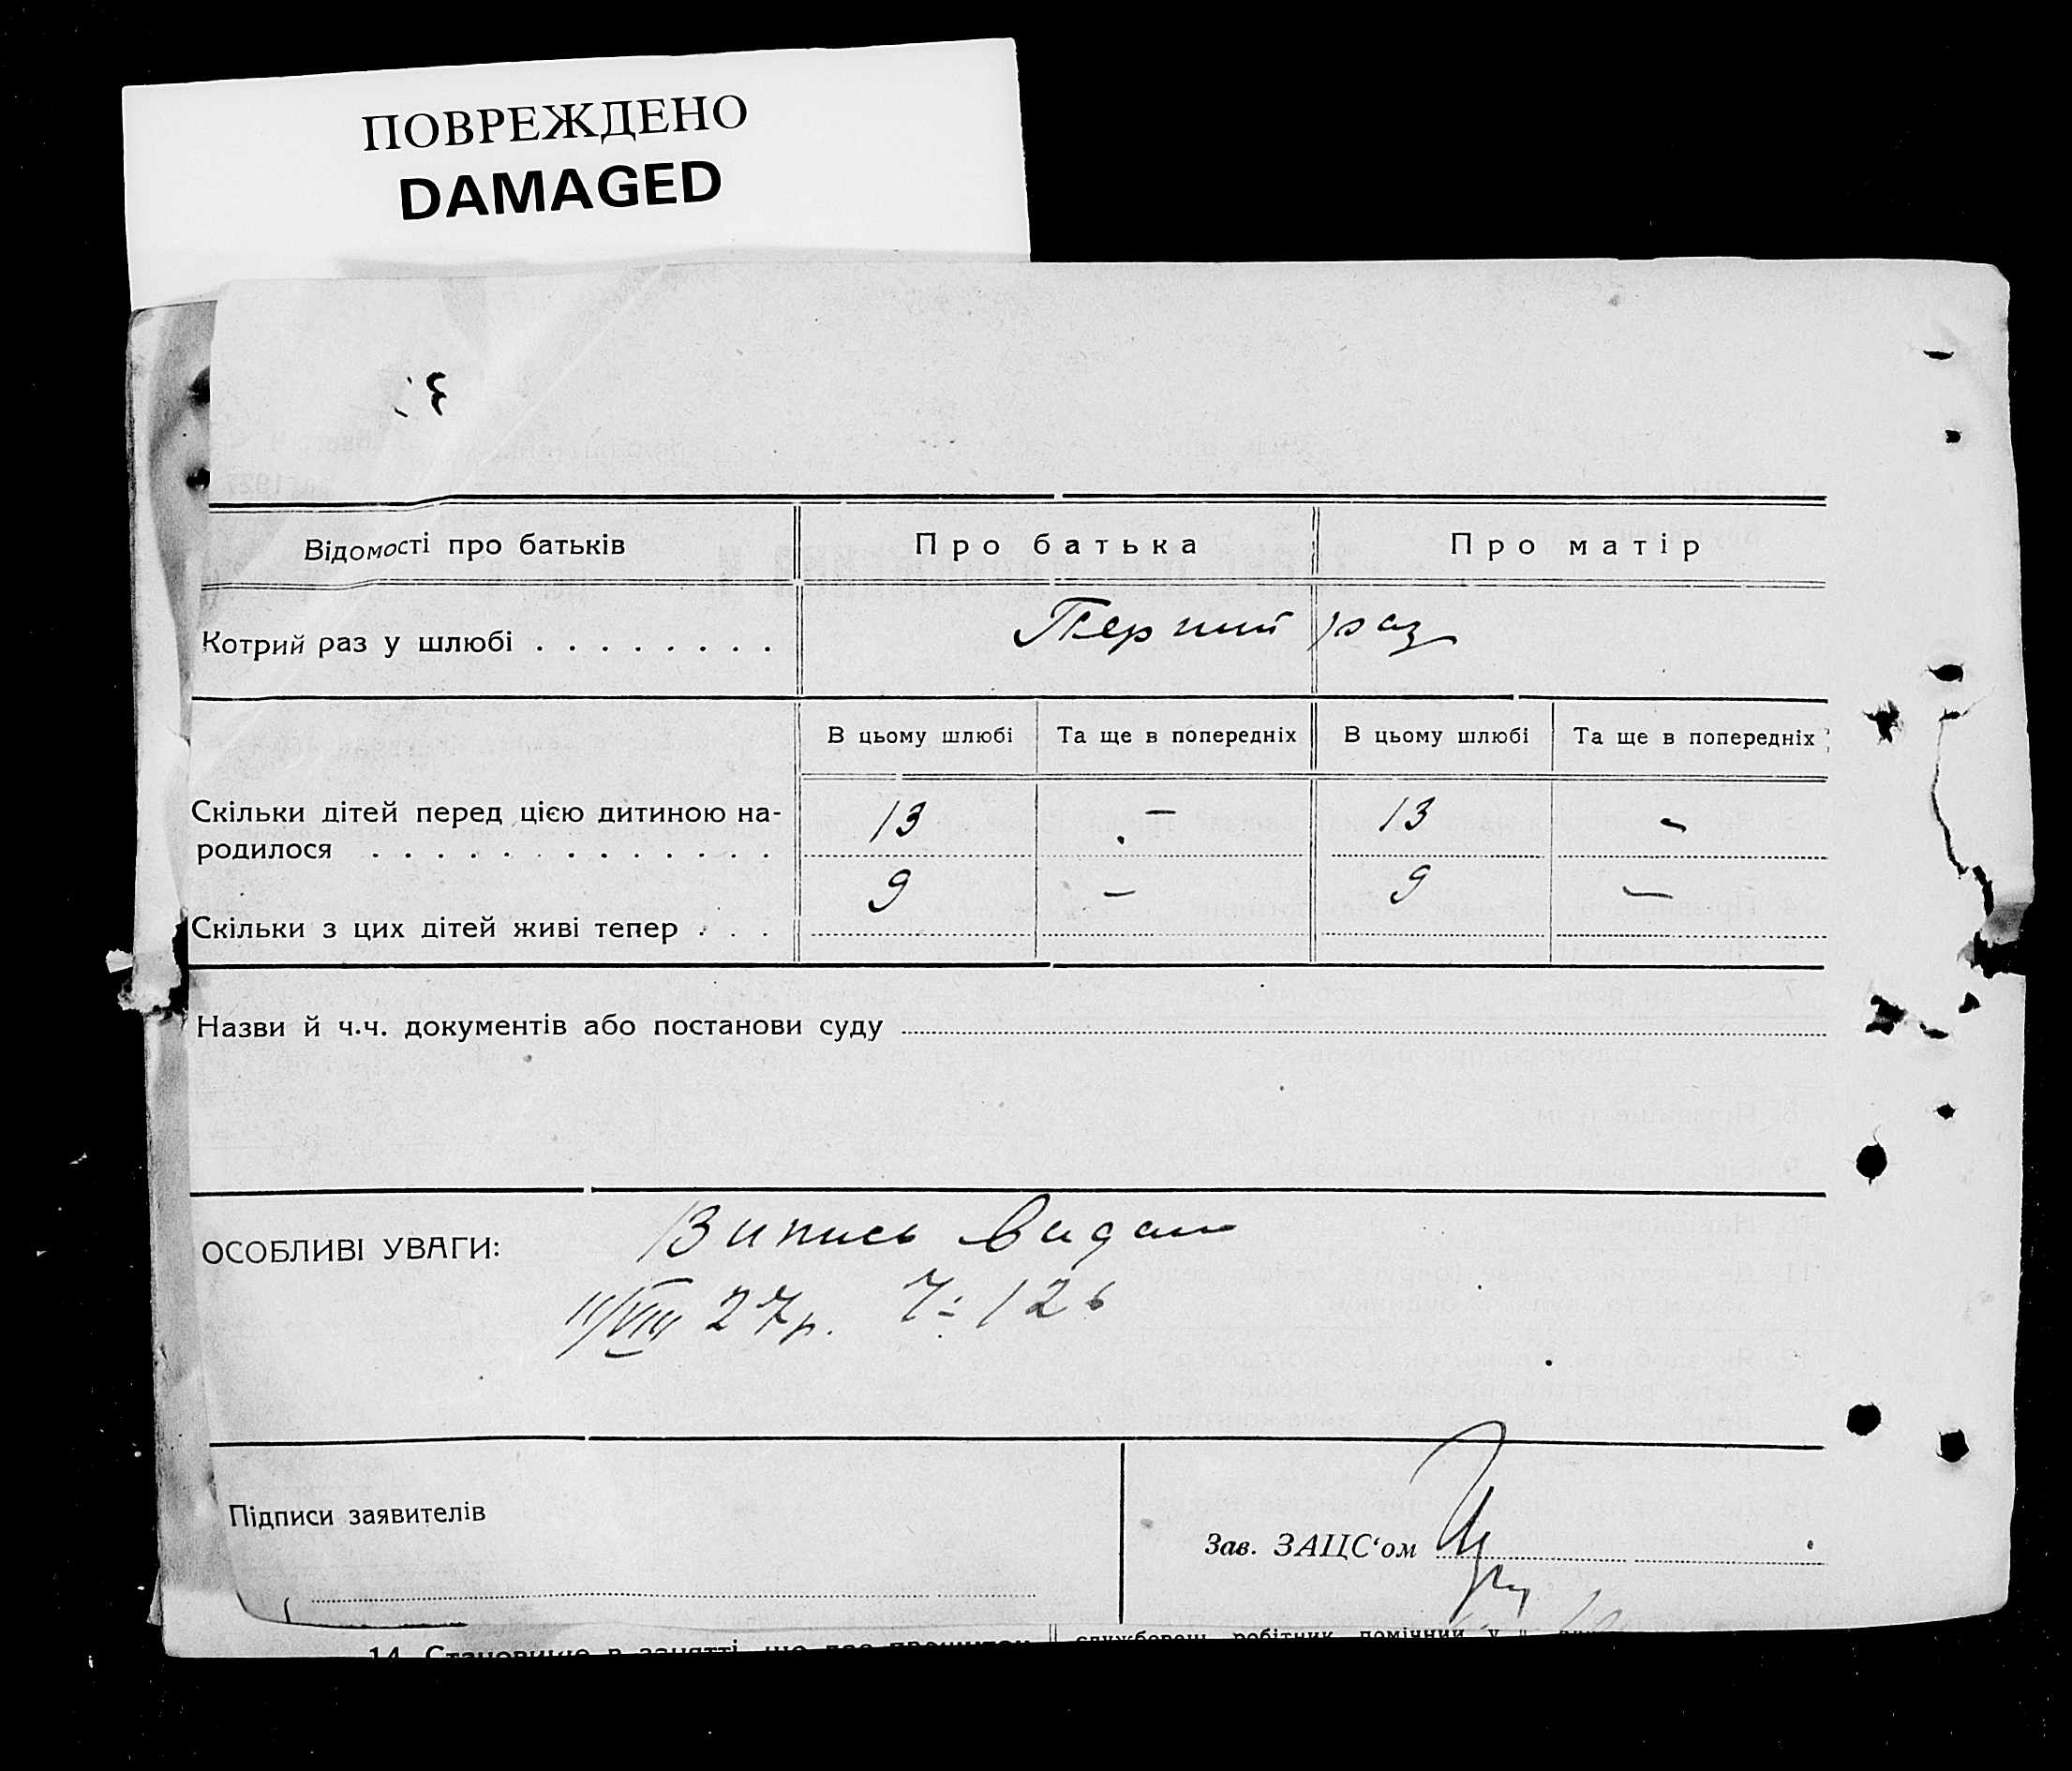 ПОВРЕЖДЕНО
DAMAGED
Відомості про батьків Про батька Про матір
Котрий раз у шлюбі . . . . . . . . Перший раз
В цьому шлюбі Та ще в попередніх В цьому шлюбі Та ще в попередніх
Скільки дітей перед цією дитиною на- 13 — 13 -
родилося . . . . . . . . . . . . .
Скільки з цих дітей живі тепер . . . 9 — 9 —
Назви й ч.ч. документів або постанови суду
ОСОБЛИВІ УВАГИ: Випись видано
11/VIII 27р.
Підписи заявителів
Зав. ЗАЦС‘ом
14. Становище в занятті, що дає
службовець, робітник, помічний у